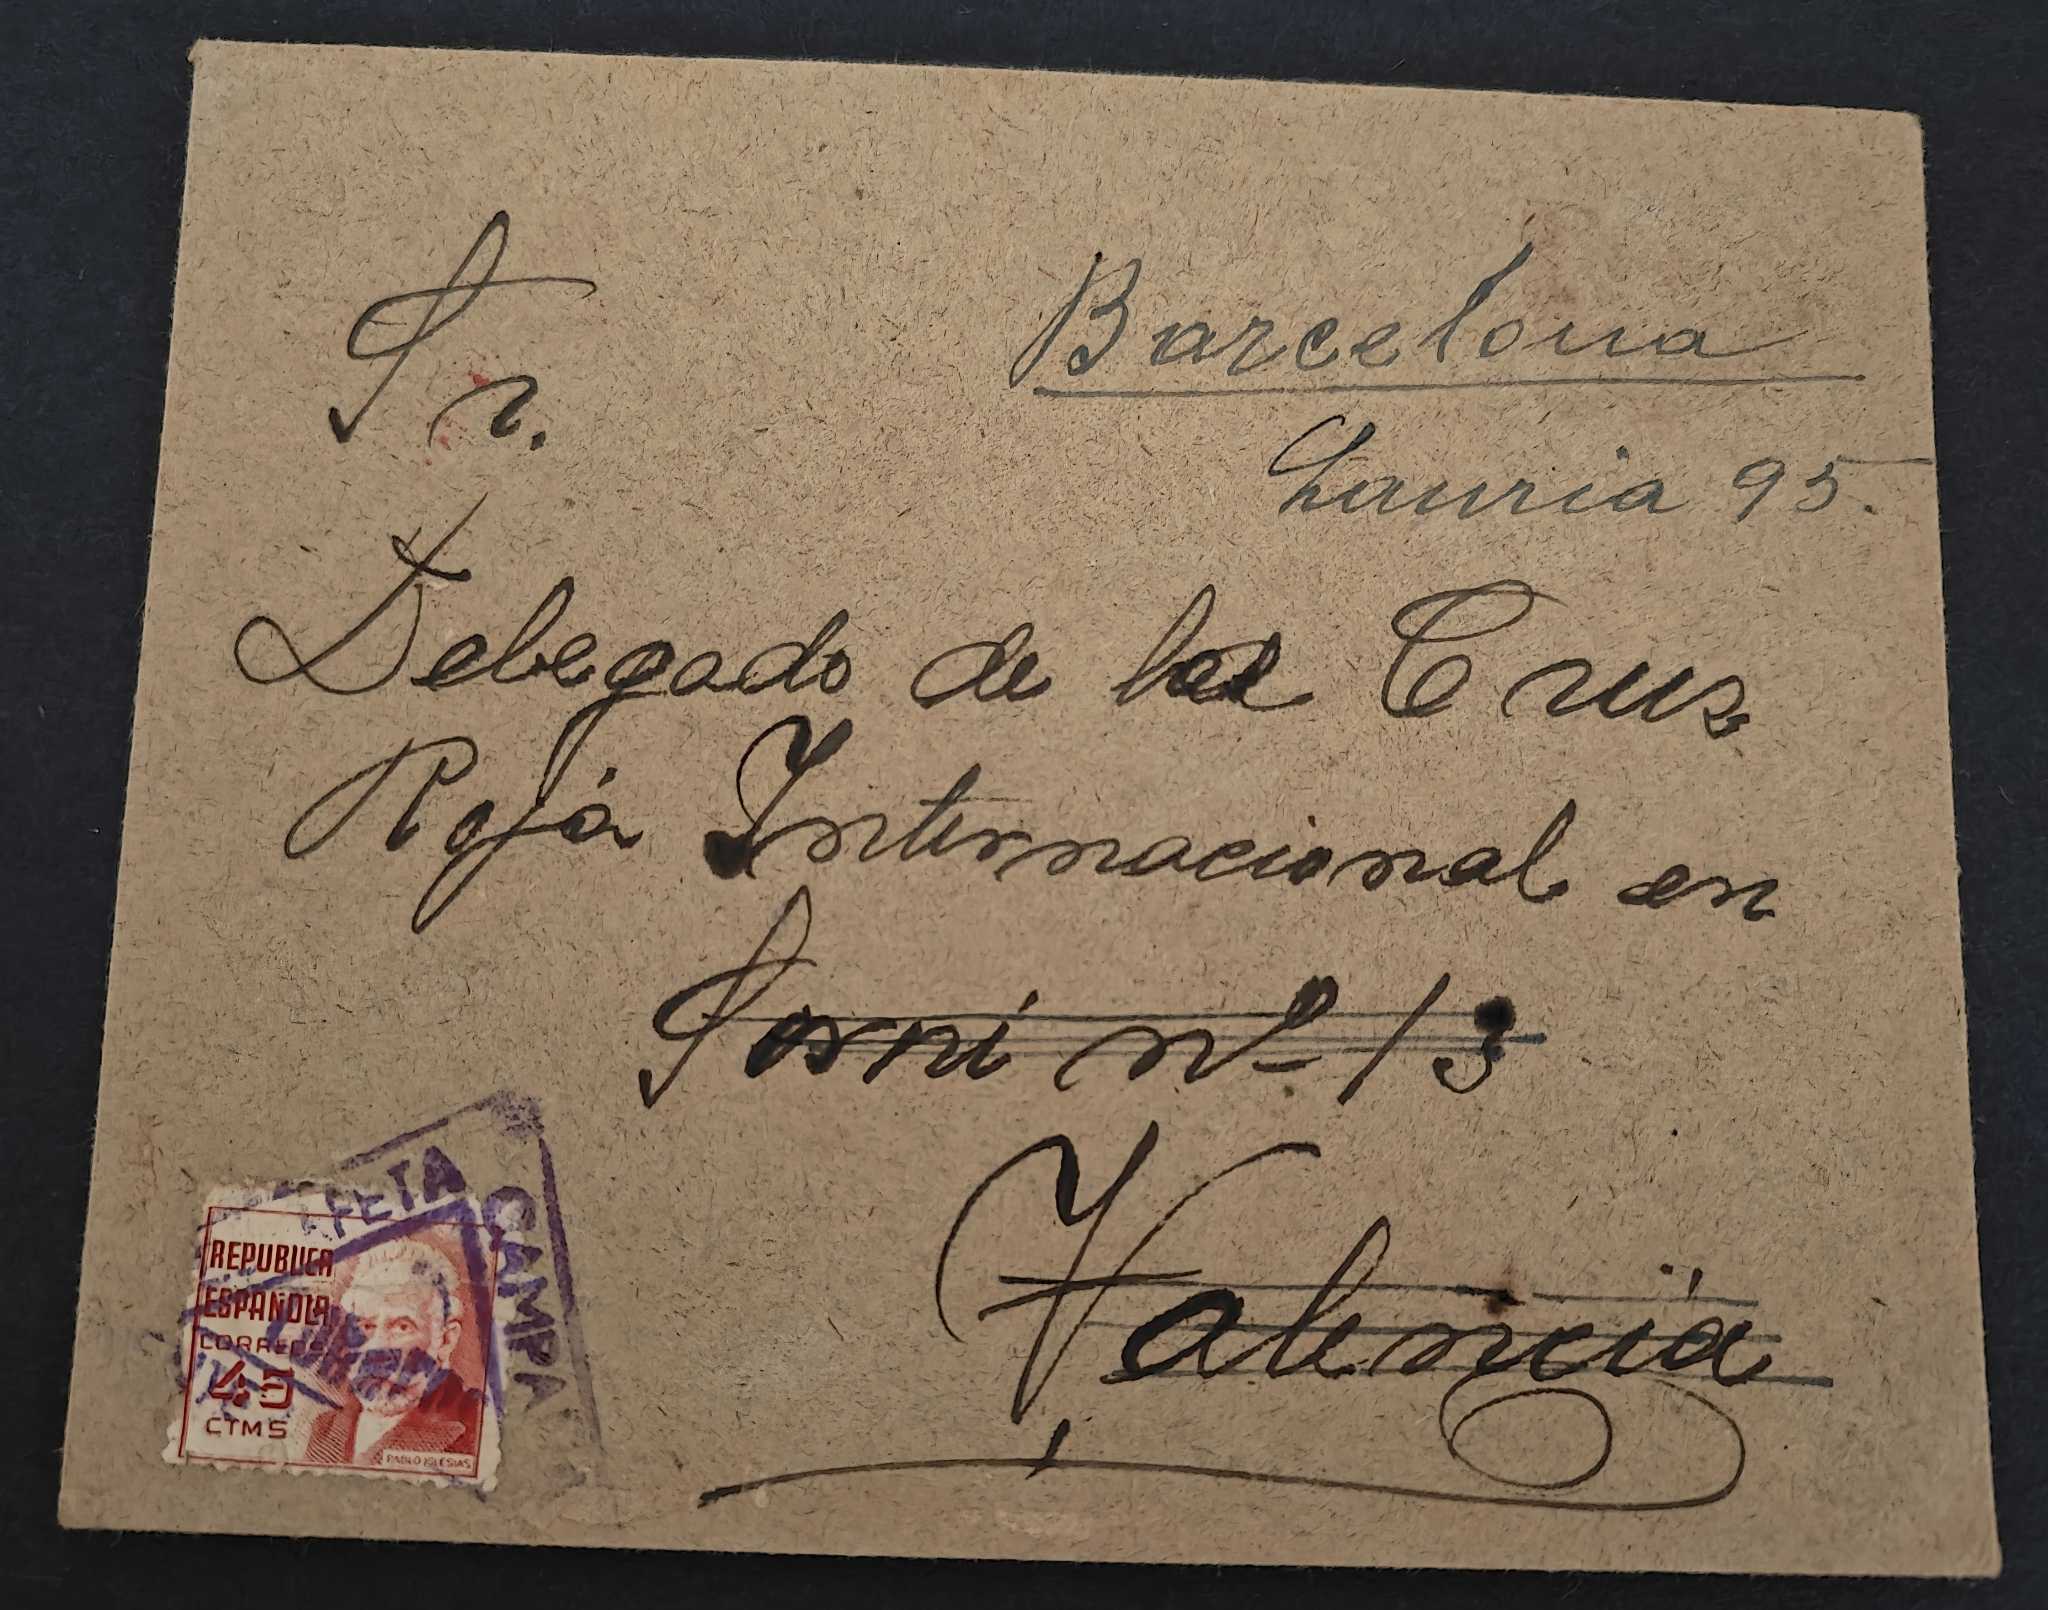 Sr.
Barcelona
Lauria 95.
Delegado de la Cruz
Roja Internacional en
Sorní nº 13
Valencia
AFETA CAMPA
REPUBLICA
ESPAÑOLA
CORREOS
45
CTMS
PABLO IGLESIAS